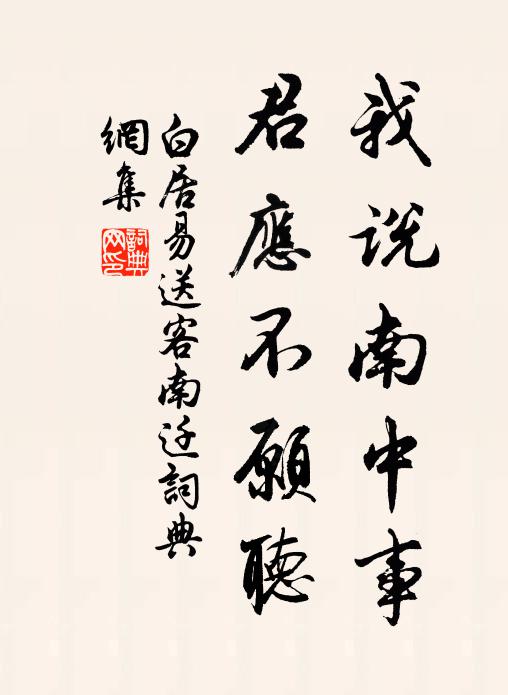 我说南中事
君應不願聽
白居易送客南迁詞典
網集
詞典
网印